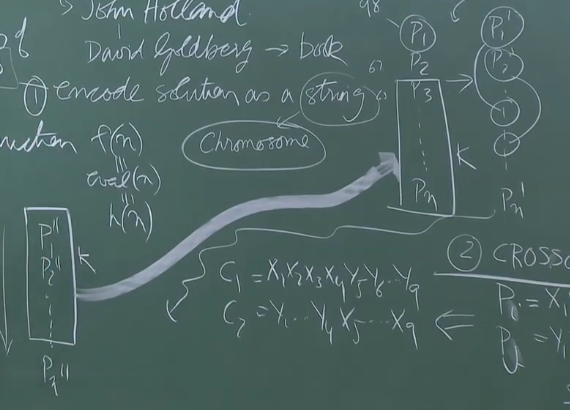 John Holland
David Goldberg → book
① encode solution as a string
Chromosome
f(n)
eval(n)
h(n)
98
P₁
P₂
P₃
Pₙ
K
P₁'
P₂'
Pₙ'
P₁''
P₂''
K
Pₙ''
C₁ = X₁X₂X₃X₄Y₅Y₆...Y₉
C₂ = Y₁...Y₄X₅...X₉
② CROSSO
= X₁
= Y₁